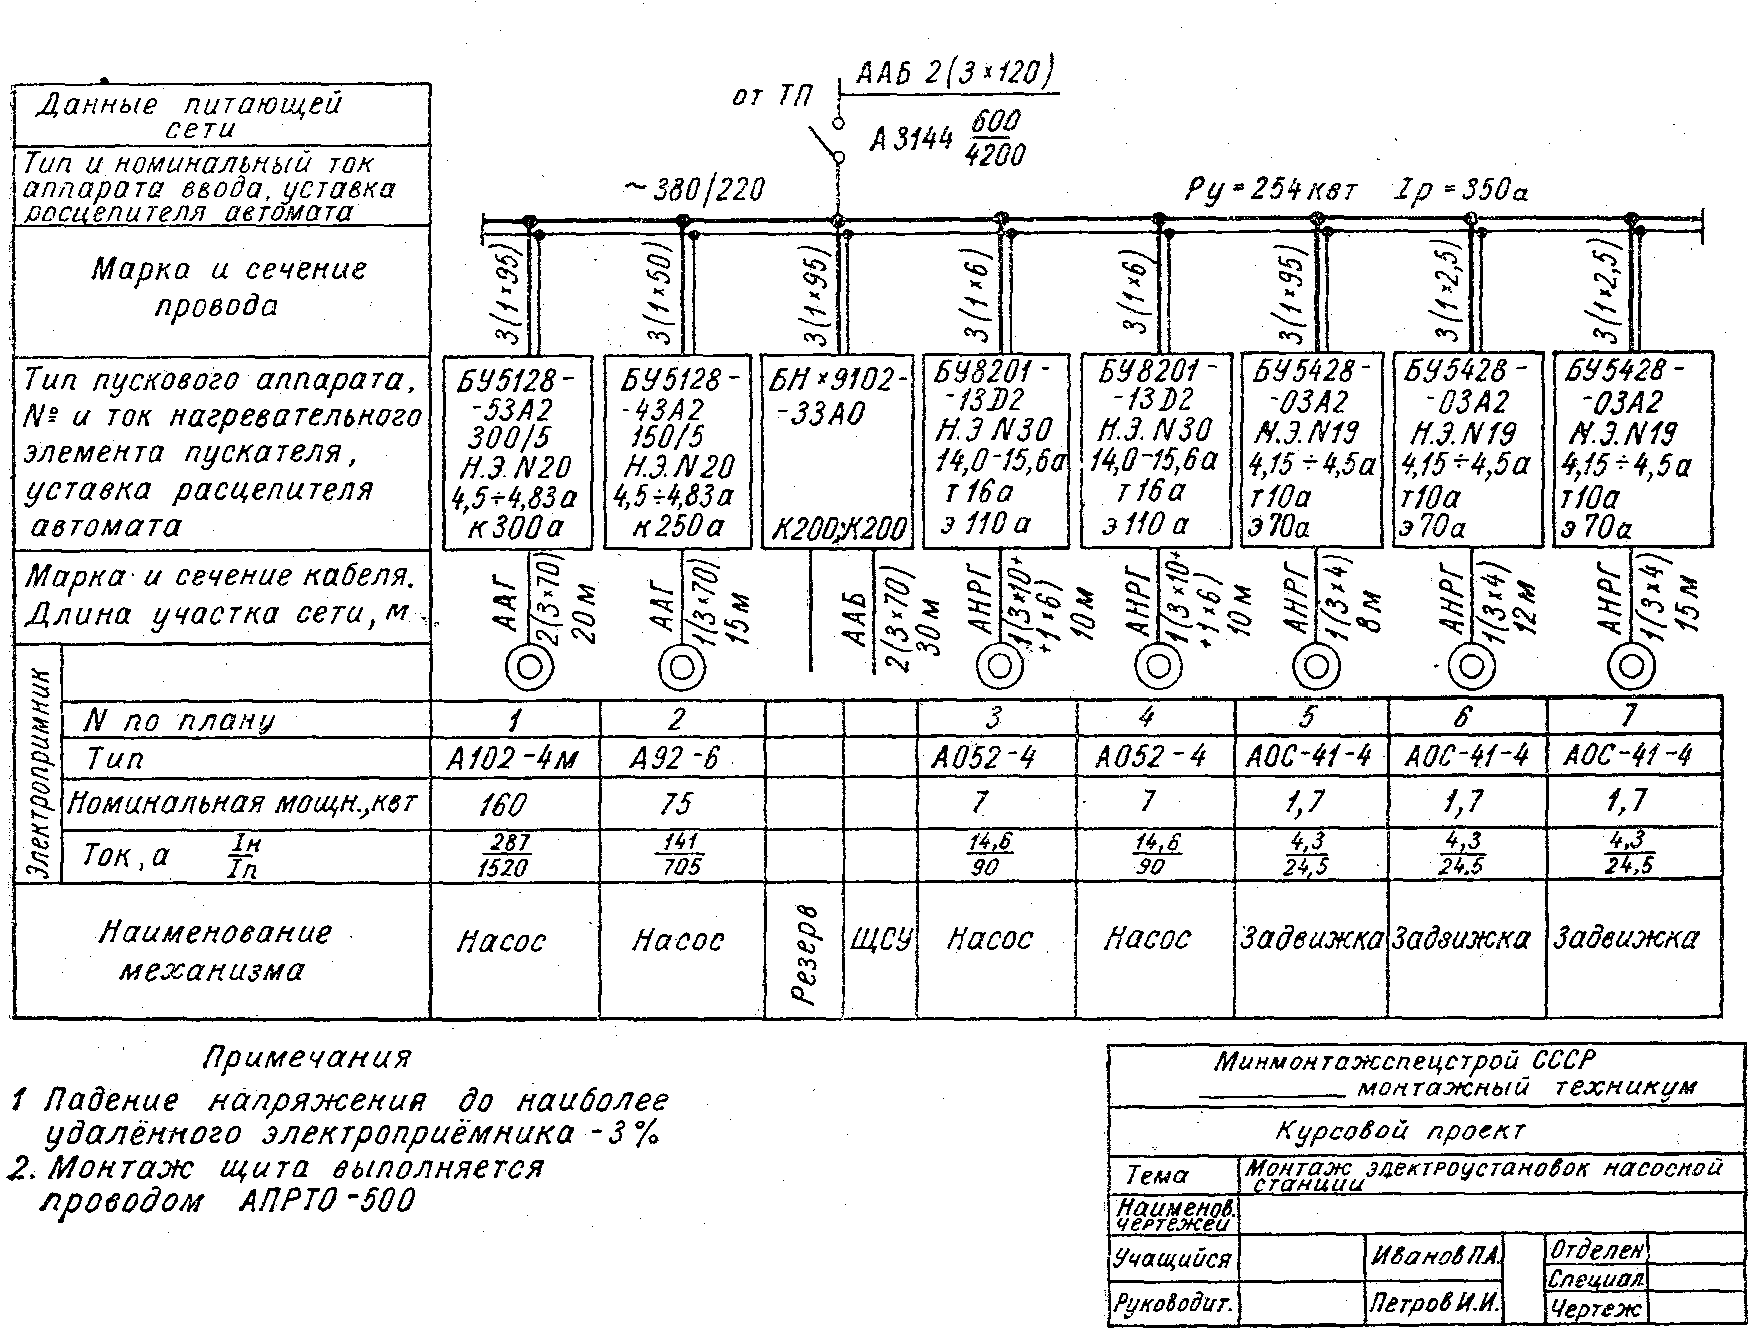 ААБ 2(3×120)
от ТП
А3144 600/4200
~380/220
Ру=254квт Iр=350а
Данные питающей
сети
Тип и номинальный ток
аппарата ввода, уставка
расцепителя автомата
Марка и сечение
провода
3(1×95)
3(1×50)
3(1×95)
3(1×6)
3(1×6)
3(1×95)
3(1×2,5)
3(1×2,5)
Тип пускового аппарата,
№ и ток нагревательного
элемента пускателя,
уставка расцепителя
автомата
БУ5128-
-53А2
300/5
Н.Э.N20
4,5÷4,83а
к300а
БУ5128-
-43А2
150/5
Н.Э.N20
4,5÷4,83а
к250а
БН×9102-
-33А0
К200;К200
БУ8201-
-13D2
Н.Э N30
14,0-15,6а
т16а
э 110а
БУ8201-
-13D2
Н.Э.N30
14,0-15,6а
т16а
э110а
БУ5428-
-03А2
Н.Э.N19
4,15÷4,5а
т10а
э70а
БУ5428-
-03А2
Н.Э.N19
4,15÷4,5а
т10а
э70а
БУ5428-
-03А2
Н.Э.N19
4,15÷4,5а
т10а
э70а
Марка и сечение кабеля.
Длина участка сети, м.
ААГ
2(3×70)
20м
ААГ
1(3×70)
15м
ААБ
2(3×70)
30м
АНРГ
1(3×10+
+1×6)
10м
АНРГ
1(3×10+
+1×6)
10м
АНРГ
1(3×4)
8м
АНРГ
1(3×4)
12м
АНРГ
1(3×4)
15м
Электроприемник
N по плану 1 2 3 4 5 6 7
Тип А102-4м А92-6 А052-4 А052-4 АОС-41-4 АОС-41-4 АОС-41-4
Номинальная мощн.,квт 160 75 7 7 1,7 1,7 1,7
Ток, а Iн/Iп 287/1520 141/705 14,6/90 14,6/90 4,3/24,5 4,3/24.5 4,3/24,5
Наименование
механизма
Насос
Насос
Резерв
ЩСУ
Насос
Насос
Задвижка
Задвижка
Задвижка
Примечания
1 Падение напряжения до наиболее
удалённого электроприёмника -3%
2. Монтаж щита выполняется
проводом АПРТО-500
Минмонтажспецстрой СССР
монтажный техникум
Курсовой проект
Тема Монтаж электроустановок насосной
станции
Наименов.
чертежей
Учащийся Иванов П.А. Отделен
Специал.
Руководит. Петров И.И. Чертеж